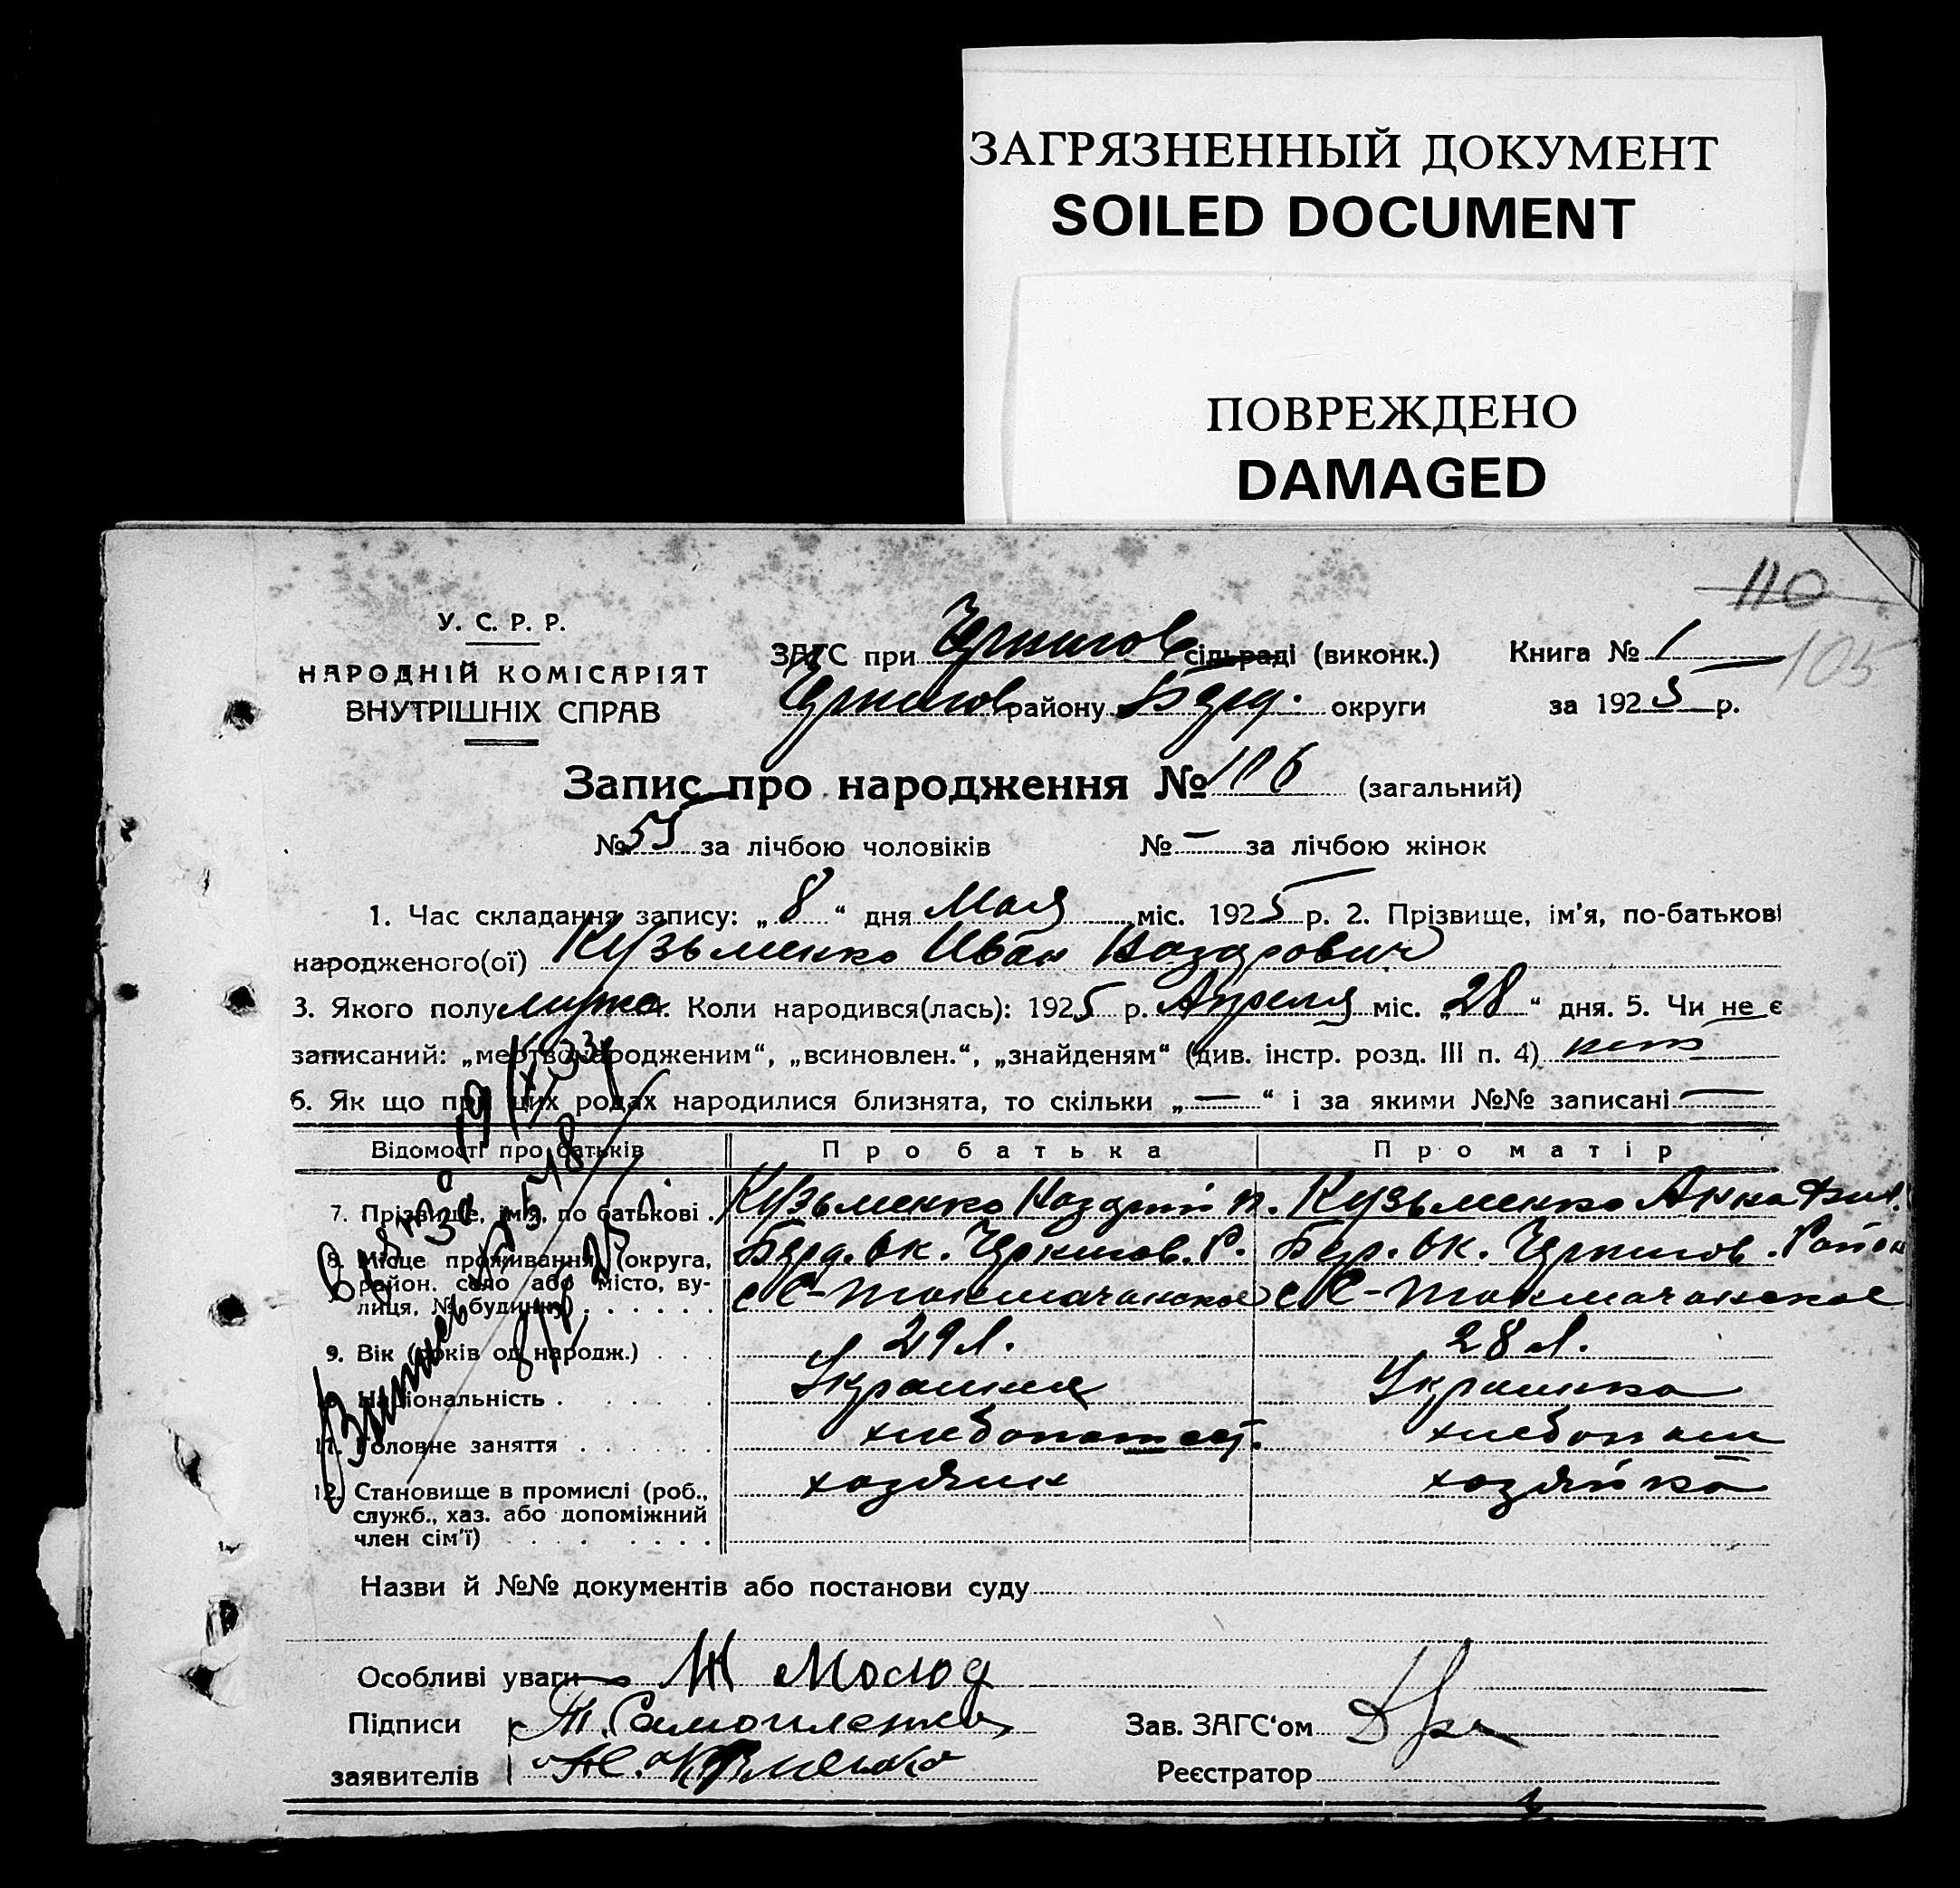 ЗАГРЯЗНЕННЫЙ ДОКУМЕНТ
SOILED DOCUMENT
ПОВРЕЖДЕНО
DAMAGED
110
105
У. С. Р. Р.
НАРОДНІЙ КОМІСАРІЯТ
ВНУТРІШНІХ СПРАВ
ЗАГС при Чернигов сільраді (виконк.) Книга № 1
Чернигов району Берд. округи за 1925 р.
Запис про народження № 106 (загальний)
№ 55 за лічбою чоловіків № — за лічбою жінок
1. Час складання запису: „ 8 “ дня Мая міс. 1925 р. 2. Прізвище, ім'я, по-батькові
народженого(ої) Кузьменко Иван
3. Якого полу мужс. 4. Коли народився(лась): 1925 р. Апреля міс. „ 28 “ дня. 5. Чи не є
записаний: „мертвонародженим“, „всиновлен.“, „знайденям“ (див. інстр. розд. III п. 4) нет
6. Як що при цих родах народилися близнята, то скільки „ — “ і за якими №№ записані —
Відомості про батьків Про батька Про матір
7. Прізвище, ім'я, по батькові . Кузьменко Кузьменко Анна
8. Місце проживання (округа, Берд. Ок. Чернигов. Р. Бер. Ок. Чернигов. Район
район. село або місто, ву-
лиця, № будинку) . . . . . . с С-Токмачанское с С-Токмачанское
9. Вік (років од народж.) . . . 29 л. 28 л.
10. Національність . . . . . Украинец Украинка
11. Головне заняття . . . . . . хлебопашец. хлебопаш
12. Становище в промислі (роб., хозяин хозяйка
служб., хаз. або допоміжний
член сім'ї) . . . . . . .
Назви й №№ документів або постанови суду
Особливі уваги
Підписи Самойленко Зав. ЗАГС'ом
заявителів Кузменко Реєстратор